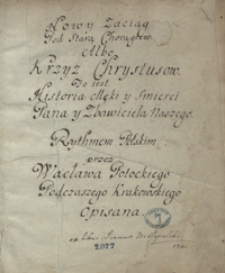 Nowy Zaciąg
Pod Starą Chorągiew
Albo
Krzyż Chrystusow.
To iest
Historia Męki y Smierci
Pana y Zbawiciela Naszego.
Rythmem Polskim
przez
Wacława Potockiego
Podczaszego Krakowskiego
Opisana.
ex libris
2077